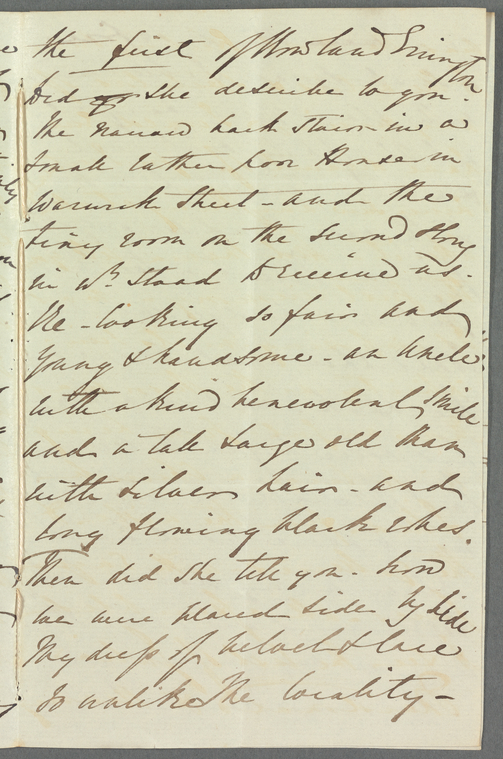 the first of Howland Errington
Did she describe to you.
The narrow back stairs in a
small rather poor House in
Warwick Street - and the
tiny room on the second story
in wh. stood to receive us.
He - looking so fair and
young & handsome - an Uncle
with a kind benevolent smile
and a tall large old man
with silver hair - and
long flowing black robes.
Then did she tell you - how
we were placed side by side
My dress of velvet & lace
so unlike the locality -